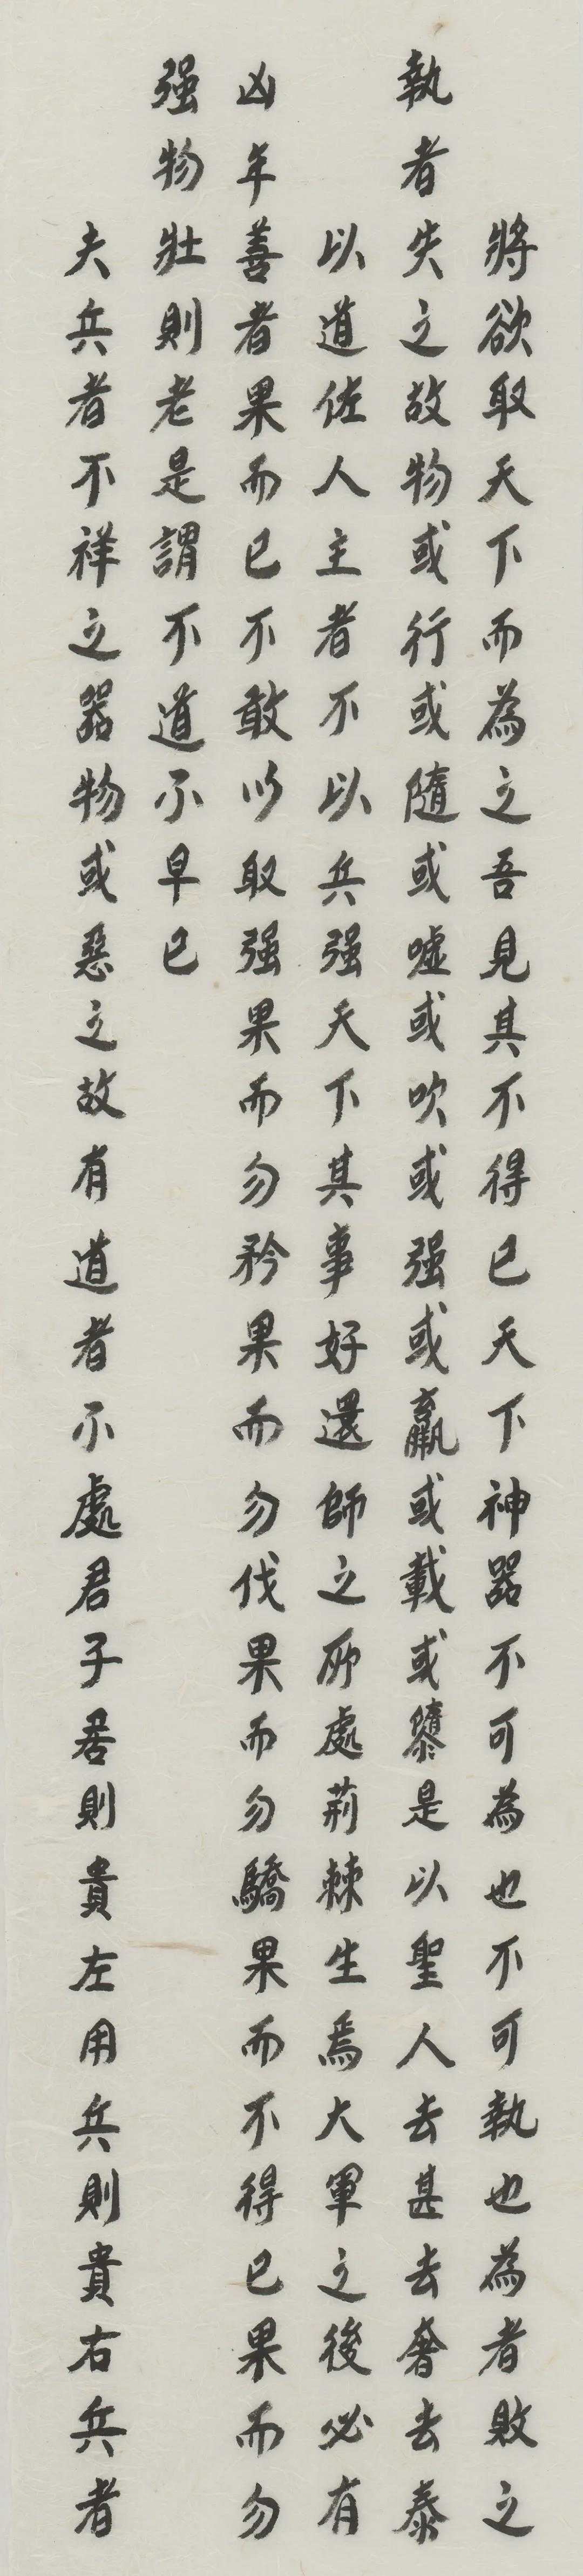 將欲取天下而為之吾見其不得已天下神器不可為也不可執也為者敗之
執者失之故物或行或隨或噓或吹或强或羸或載或隳是以聖人去甚去奢去泰
以道佐人主者不以兵强天下其事好還師之所處荊棘生焉大軍之後必有
凶年善者果而已不敢以取强果而勿矜果而勿伐果而勿驕果而不得已果而勿
强物壯則老是謂不道不早已
夫兵者不祥之器物或惡之故有道者不處君子居則貴左用兵則貴右兵者